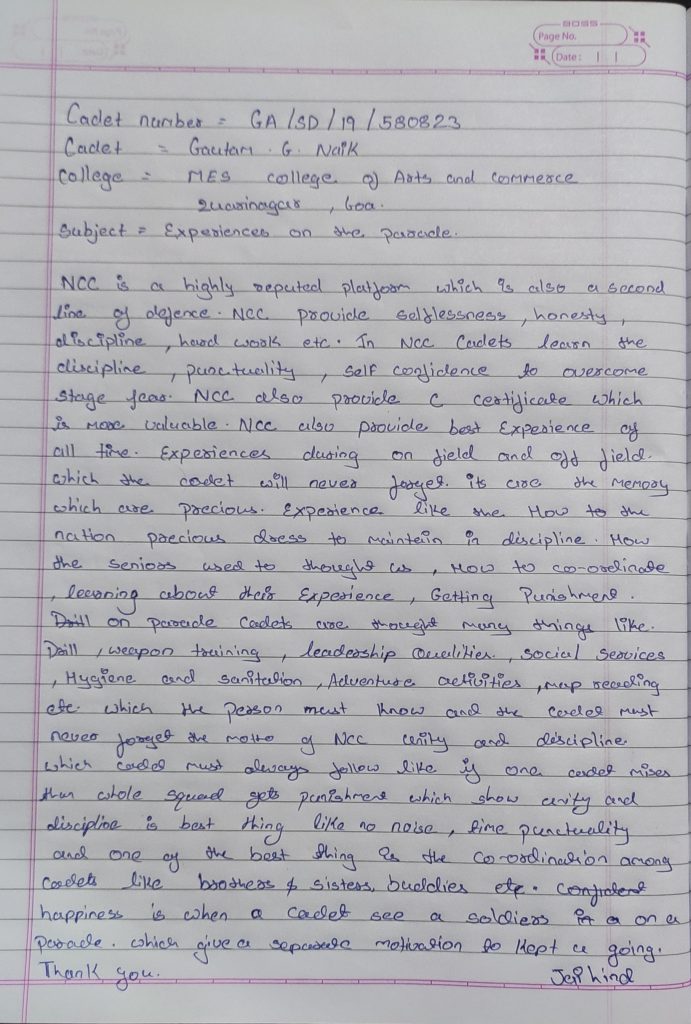 Page No.
Date:
Cadet number = GA/SD/19/580823
Cadet = Gautam. G. Naik
College = MES college of Arts and commerce
zuarinagar, Goa.
Subject = Experiences on the parade.
NCC is a highly reputed platform which is also a second
line of defence. NCC provide selflessness, honesty,
discipline, hard work etc. In NCC Cadets learn the
discipline, punctuality, self confidence to overcome
stage fear. NCC also provide C certificate which
is more valuable. NCC also provide best Experience of
all time. Experiences during on field and off field.
which the cadet will never forget. its are the memory
which are precious. Experience like the How to the
nation precious dress to maintain in discipline. How
the seniors used to thought us, How to co-ordinate
, learning about their Experience, Getting Punishment.
Drill on parade Cadets are thought many things like.
Drill, weapon training, leadership Qualities, social services
, Hygiene and sanitation, Adventure activities, map reading
etc. which the person must know and the cadet must
never forget the motto of NCC unity and discipline.
which cadet must always follow like if one cadet mises
than whole squad gets punishment which show unity and
discipline is best thing like no noise, time punctuality
and one of the best thing is the co-ordination among
Cadets like brothers & sisters, buddies etc.
happiness is when a Cadet see a soldiers on a
parade. which give a separate motivation to kept a going.
Thank you. Jai hind